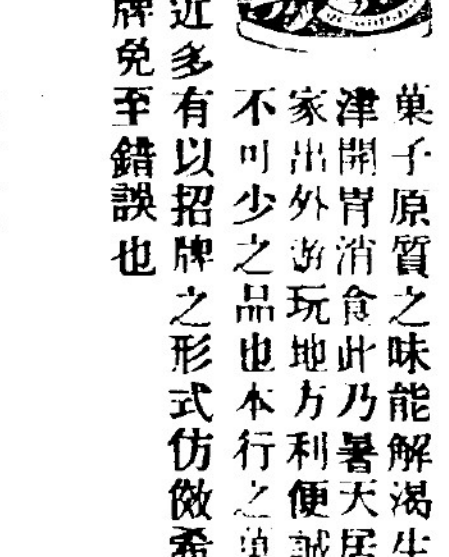 菓子原質之味能解渴生
津開胃消食此乃暑天居
家出外游玩地方利便誠
不可少之品也本行之菓
近多有以招牌之形式仿傚希
牌免至錯誤也